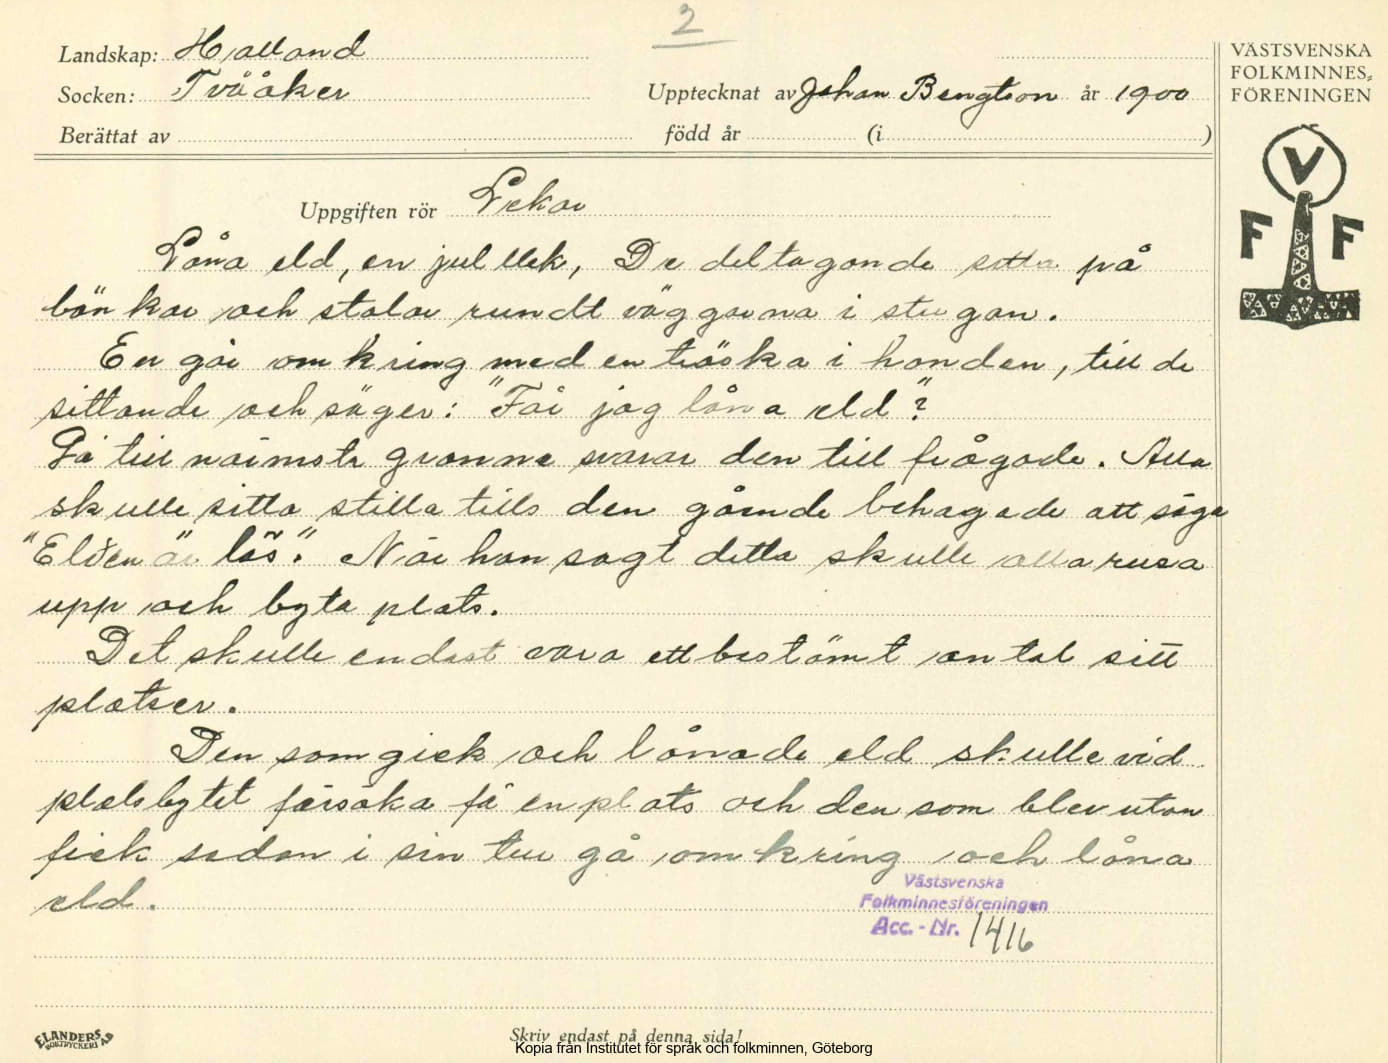 2
Landskap: Halland
Socken: Tvååker
Upptecknat av Johan Bengtson år 1900
Berättat av född år (i )
VÄSTSVENSKA
FOLKMINNES-
FÖRENINGEN
V
F F
Uppgiften rör Lekar
Låna eld, en jul lek, De deltagande sitta på
bänkar och stolar rundt väggarna i stugan.
En går omkring med en träska i handen, till de
sittande och säger: "Får jag låna eld"?
Gå till närmste granne svarar den till frågade. Alla
skulle sitta stilla tills den gående behagade att säga
"Elden är lös". När han sagt detta skulle alla rusa
upp och byta plats.
Det skulle endast vara ett bestämt antal sitt
platser.
Den som gick och lånade eld skulle vid
platsbytet försöka få en plats och den som blev utan
fick sedan i sin tur gå omkring och låna
eld.
Västsvenska
Folkminnesföreningen
Acc.-Nr. 1416
ELANDERS
BOKTRYCKERI AB
Skriv endast på denna sida!
Kopia från Institutet för språk och folkminnen, Göteborg